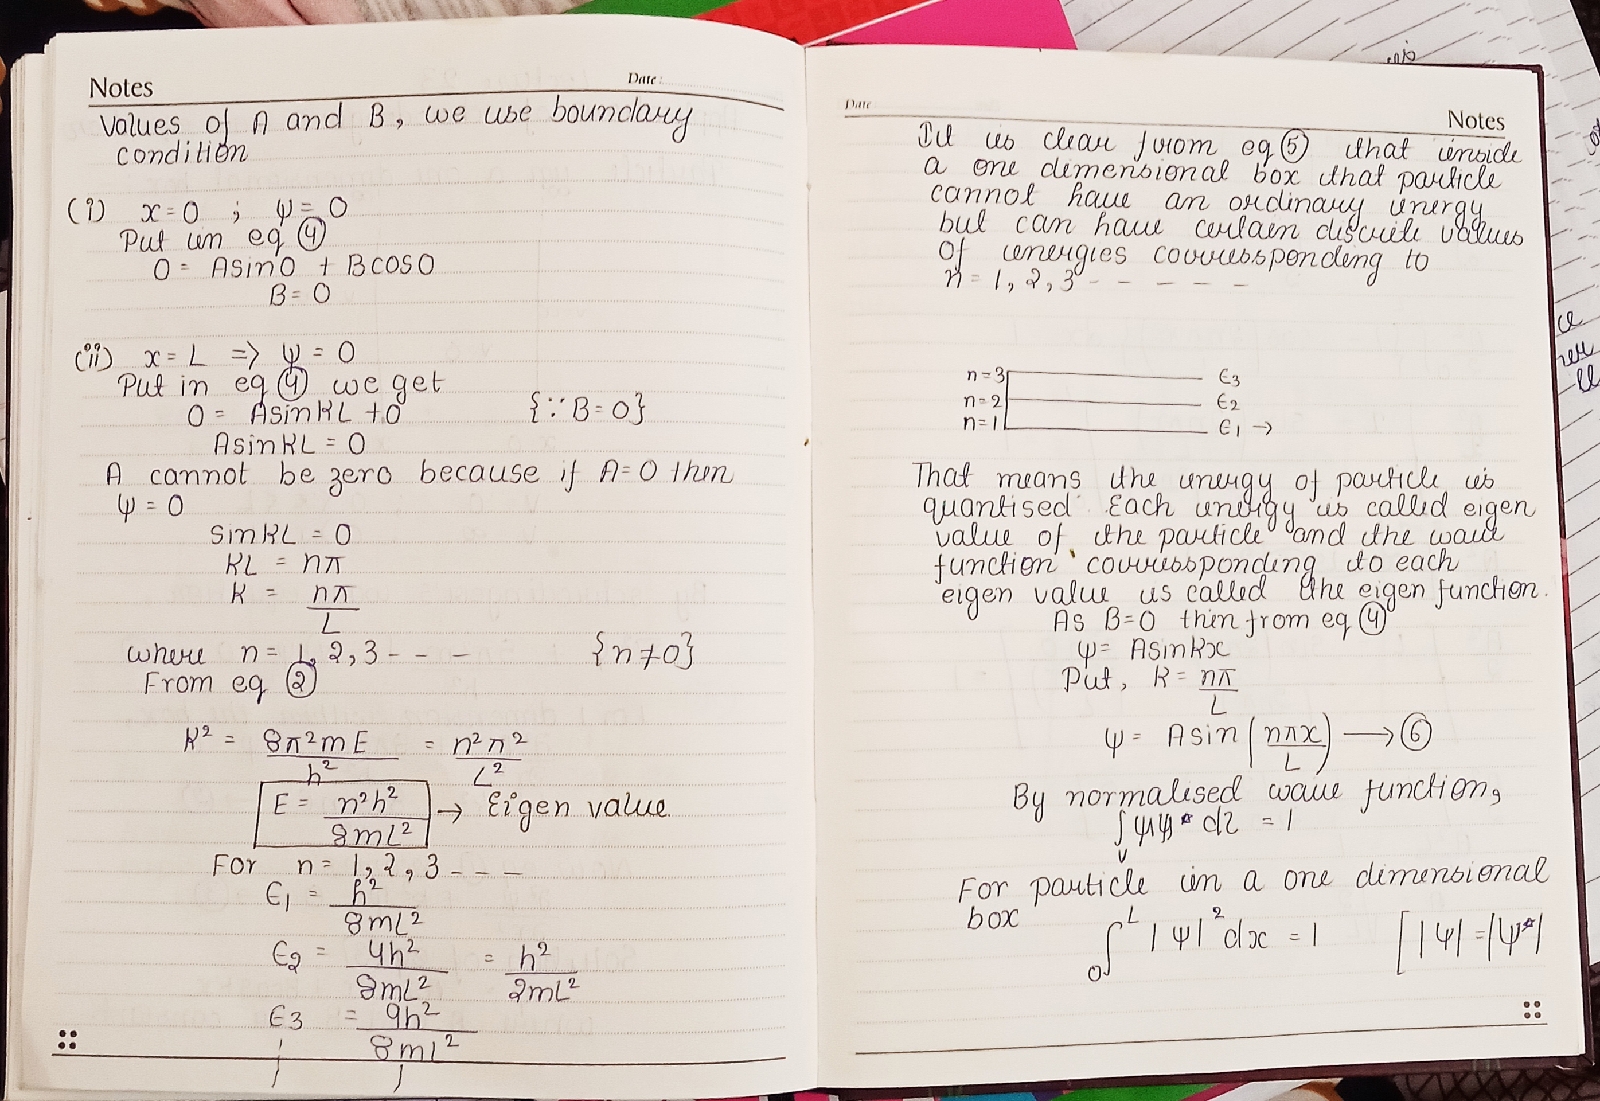 Notes
Date:
Values of A and B, we use boundary
condition
(i) x=0 ; ψ=0
Put in eq ④
0 = Asin0 + Bcos0
B=0
(ii) x=L => ψ=0
Put in eq ④ we get
0 = AsinKL +0 {∵B=0}
AsinKL = 0
A cannot be zero because if A=0 then
ψ=0
sinKL = 0
KL = nπ
K = nπ/L
where n= 1, 2, 3 - - - {n≠0}
From eq ②
K² = 8π²mE/h² = n²π²/L²
E = n²h²/8mL² → Eigen value
For n= 1, 2, 3 - - -
E1 = h²/8mL²
E2 = 4h²/8mL² = h²/2mL²
E3 = 9h²/8mL²
Date
Notes
It is clear from eq ⑤ that inside
a one dimensional box that particle
cannot have an ordinary energy
but can have certain discrete values
of energies corresponding to
n = 1, 2, 3 - - - - -
n=3 E3
n=2 E2
n=1 E1 →
That means the energy of particle is
quantised. Each energy is called eigen
value of the particle and the wave
function corresponding to each
eigen value is called the eigen function.
As B=0 then from eq ④
ψ= AsinKx
Put, K= nπ/L
ψ= Asin(nπx/L) → ⑥
By normalised wave function,
∫ψψ* dz = 1
For particle in a one dimensional
box
∫₀ᴸ |ψ|² dx = 1 [|ψ|=|ψ*|